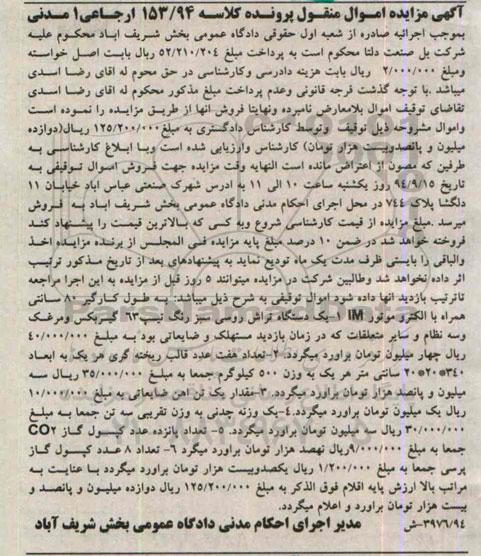 آگهی مزایده اموال منقول پرونده کلاسه ۱۵۳/۹۴ ارجاعی۱ مدنی
بموجب اجرائیه صادره از شعبه اول حقوقی دادگاه عمومی بخش شریف اباد محکوم علیه
شرکت بل صنعت دلتا محکوم است به پرداخت مبلغ ۵۲/۲۱۰/۲۰۴ ریال بابت اصل خواسته
ومبلغ ۲/۰۰۰/۰۰۰ ریال بابت هزینه دادرسی وکارشناسی در حق محوم له اقای رضا اسدی
میباشد .با توجه گذشت فرجه قانونی وعدم پرداخت مبلغ مذکور محکوم له اقای رضا اسدی
تقاضای توقیف اموال بلامعارض نامبرده ونهایتا فروش انها از طریق مزایده را نموده است
واموال مشروحه ذیل توقیف وتوسط کارشناس دادگستری به مبلغ ۱۲۵/۲۰۰/۰۰۰ ریال(دوازده
میلیون و پانصدوبیست هزار تومان) کارشناس وارزیابی شده است وبا ابلاغ کارشناسی به
طرفین که مصون از اعتراض مانده است النهایه وقت مزایده جهت فروش اموال توقیفی به
تاریخ ۹۴/۹/۱۵ روز یکشنبه ساعت ۱۰ الی ۱۱ به ادرس شهرک صنعتی عباس اباد خیابان ۱۱
دلگشا پلاک ۷۴۴ در محل اجرای احکام مدنی دادگاه عمومی بخش شریف اباد به فروش
میرسد .مبلغ مزایده از قیمت کارشناسی شروع وبه کسی که بالاترین قیمت را پیشنهاد کند
فروخته خواهد شد در ضمن ۱۰ درصد مبلغ پایه مزایده فی المجلس از برنده مزایده اخذ
والباقی را بایستی ظرف مدت یک ماه تودیع نماید به پیشنهادهای بعد از تاریخ مذکور ترتیب
اثر داده نخواهد شد وطالبین شرکت در مزایده میتوانند ۵ روز قبل از مزایده به این اجرا مراجعه
تاترتیب بازدید انها داده شود اموال توقیفی به شرح ذیل میباشد: به طول کارگیر ۸۰ سانتی
همراه با الکترو موتور IM ۱-یک دستگاه تراش روسی سبز رنگ تیپ۶۳ گیربکس ومرغک
وسه نظام و سایر متعلقات که در زمان بازدید مستهلک و ضایعاتی بود به مبلغ ۴۰/۰۰۰/۰۰۰
ریال چهار میلیون تومان براورد میگردد. ۲-تعداد هفت عدد قالب ریخته گری هر یک به ابعاد
۳۴۰*۲۰*۲۰ سانتی متر هر یک به وزن ۵۰۰ کیلوگرم جمعا به مبلغ ۳۵/۰۰۰/۰۰۰ ریال سه
میلیون و پانصد هزار تومان براورد میگردد. ۳-مقدار یک تن اهن ضایعاتی به مبلغ ۱۰/۰۰۰/۰۰۰
ریال یک میلیون تومان براورد میگردد.۴-یک وزنه چدنی به وزن تقریبی سه تن جمعا به مبلغ
۳۰/۰۰۰/۰۰۰ ریال سه میلیون تومان براورد میگردد. ۵- تعداد پانزده عدد کپسول گاز CO۲
جمعا به مبلغ ۹/۰۰۰/۰۰۰ریال نهصد هزار تومان براورد میگرد ۶- تعداد ۸ عدد کپسول گاز
پرسی جمعا به مبلغ ۱/۲۰۰/۰۰۰ ریال یکصدوبیست هزار تومان براورد میگردد با عنایت به
مراتب بالا ارزش پایه اقلام فوق الذکر به مبلغ ۱۲۵/۲۰۰/۰۰۰ ریال دوازده میلیون و پانصد و
بیست هزار تومان براورد و اعلام میگردد.
۳۹۷۶/۹۴-ش مدیر اجرای احکام مدنی دادگاه عمومی بخش شریف آباد